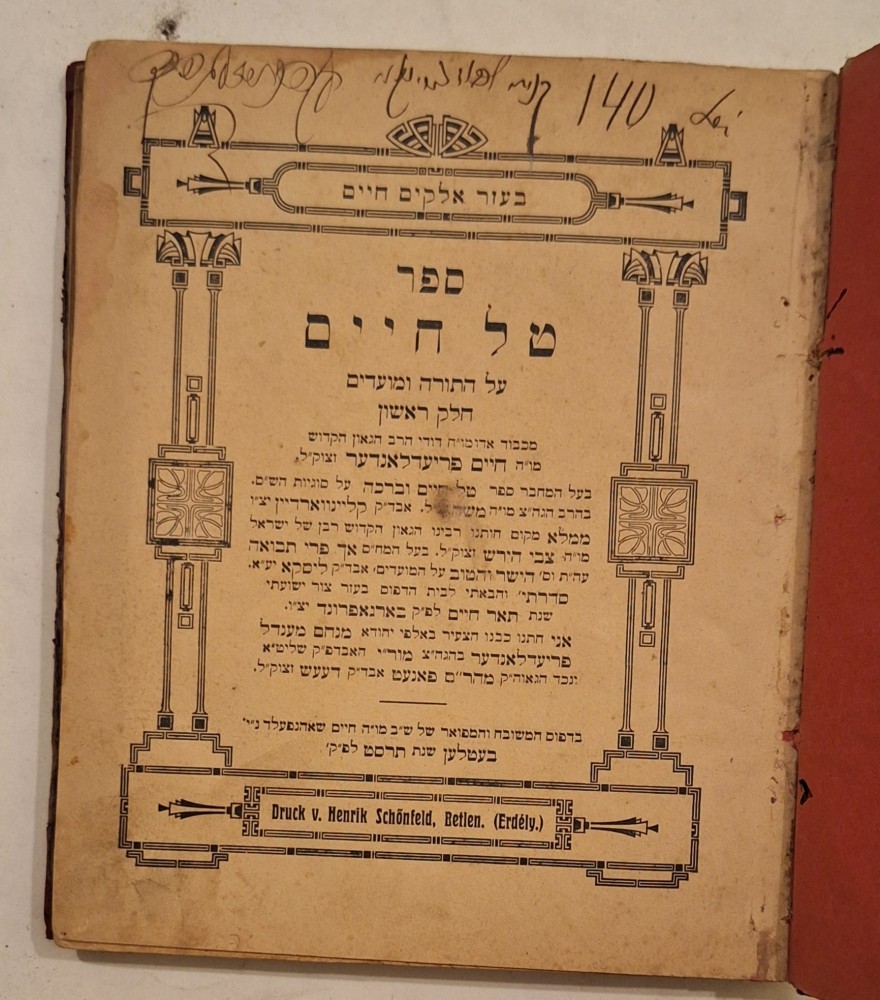 140
בעזר אלקים חיים
ספר
טל חיים
על התורה ומועדים
חלק ראשון
מכבוד אדומו״ח דודי הרב הגאון הקדוש
מו״ה חיים פריעדלאנדער זצוק״ל.
בעל המחבר ספר טל חיים וברכה על סוגיות הש״ס.
בהרב הגה״צ מו״ה אבד״ק קליינווארדיין יצ״ו
ממלא מקום חותנו רבינו הגאון הקדוש רבן של ישראל
מו״ה צבי הירש זצוק״ל. בעל המח״ס אך פרי תבואה
עה״ת וס׳ הישר והטוב על המועדים׳ אבד״ק ליסקא יע״א.
סדרתי׳ והבאתי לבית הדפוס בעזר צור ישועתי
שנת תאר חיים לפ״ק בארנאפרונד יצ״ו.
אני חתנו כבנו הצעיר באלפי יהודא מנחם מענדל
פריעדלאנדער בהגה״צ מור״י האבדפ״ק שליט״א
ונכד הגאוה״ק מהר״ם פאנעט אבד״ק דעעש זצוק״ל.
בדפוס המשובח והמפואר של ש״ב מו״ה חיים שאהנפעלד נ״י
בעטלען שנת תרסט לפ״ק׳
Druck v. Henrik Schönfeld, Betlen. (Erdély.)